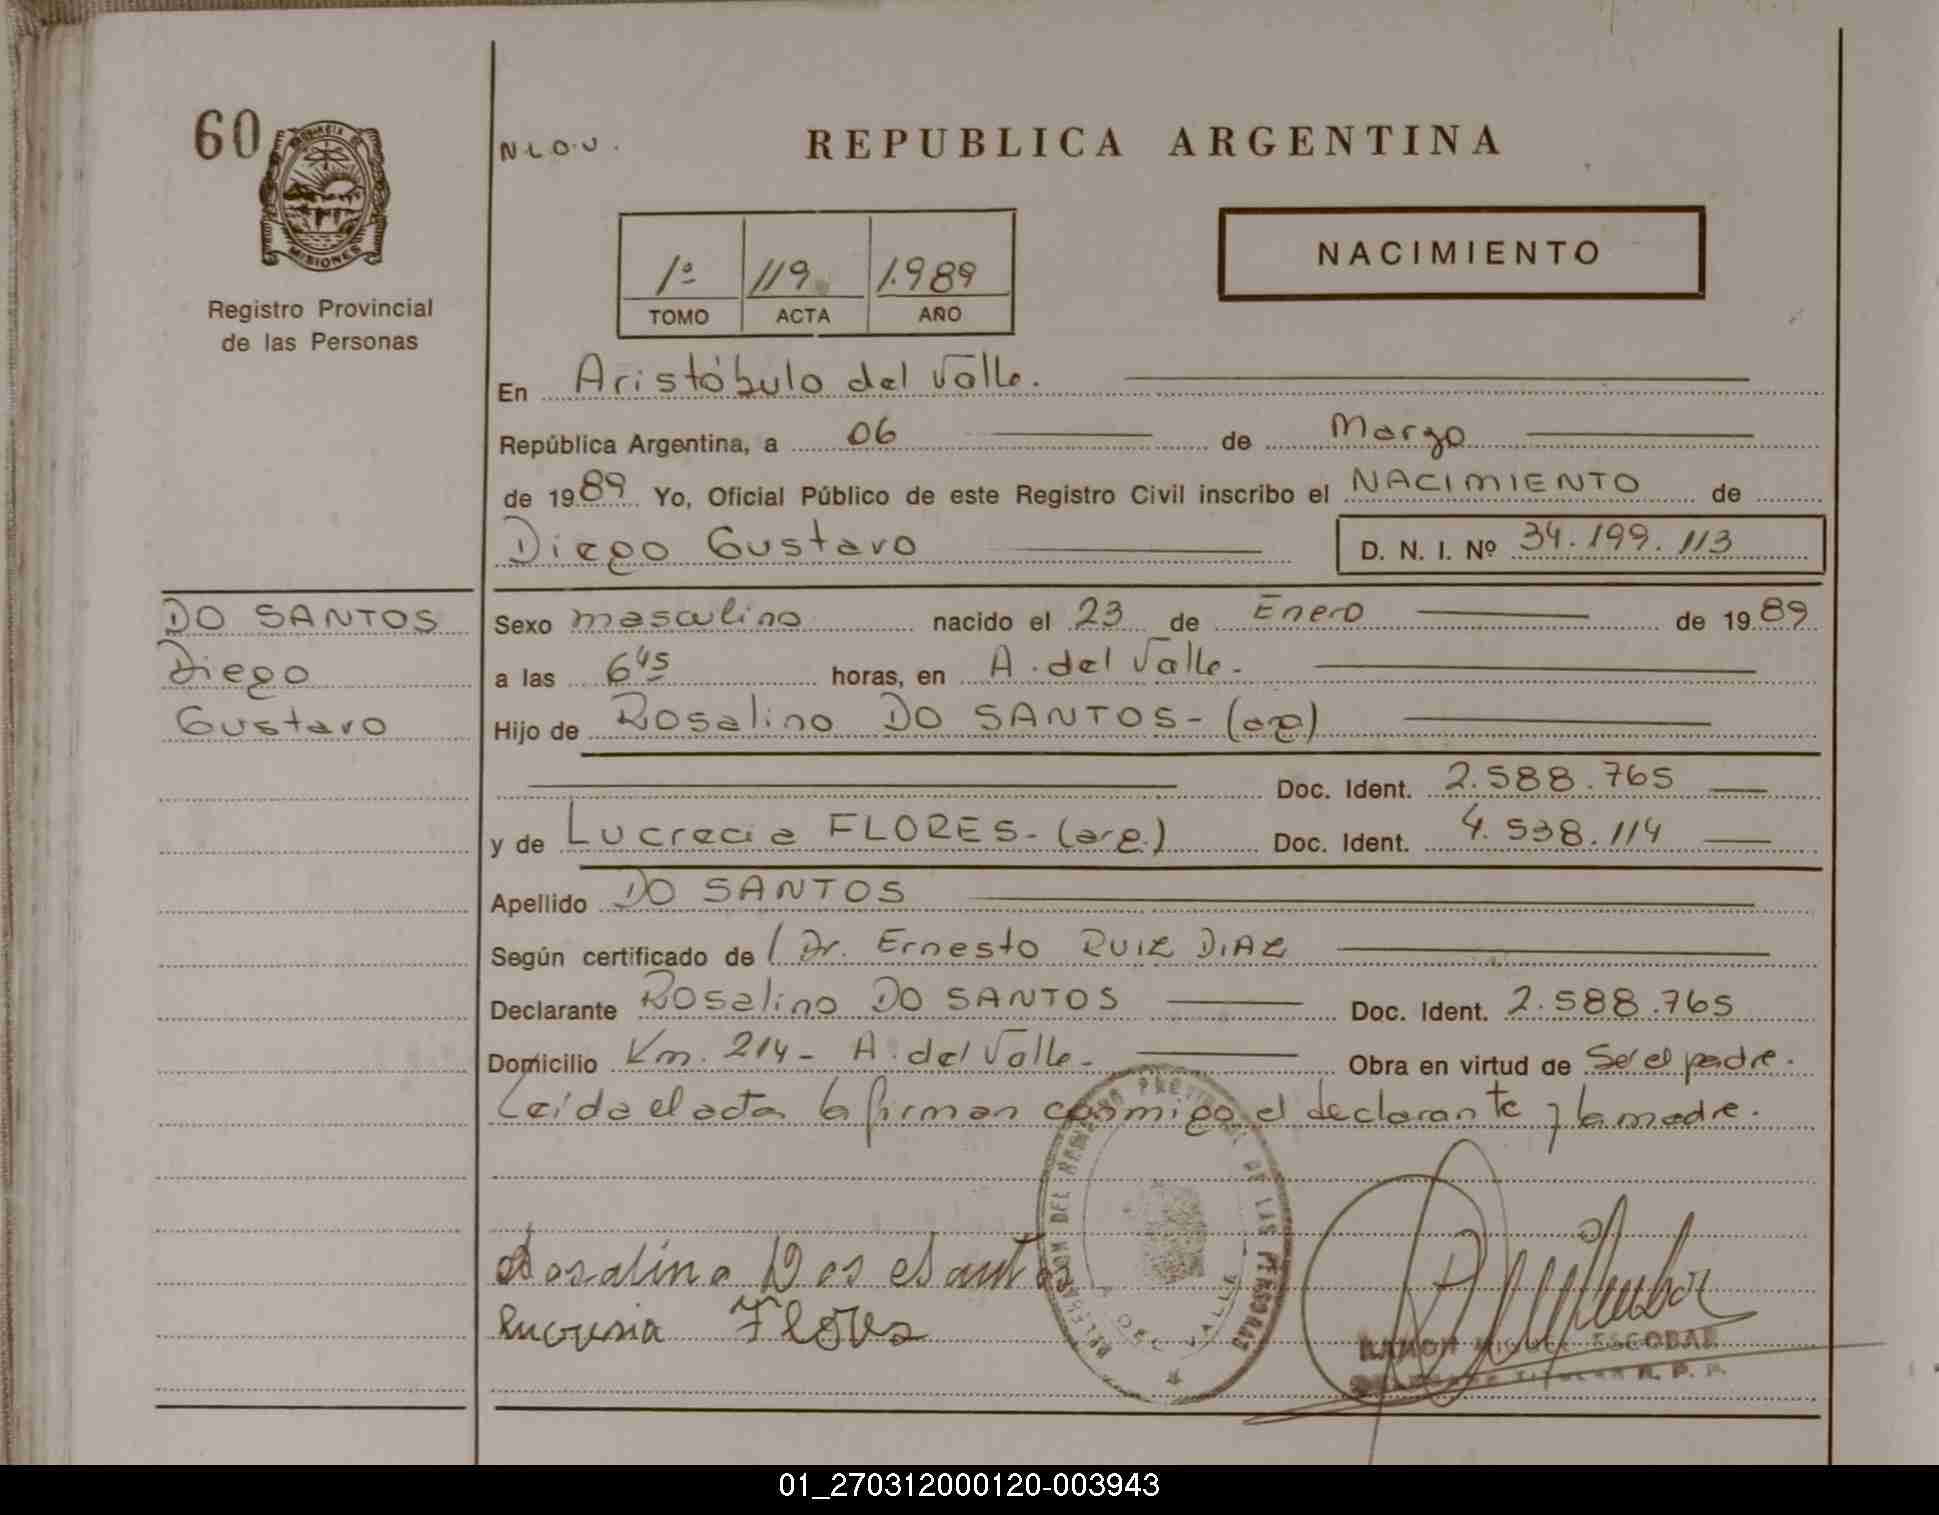 60
PROVINCIA
MISIONES
Registro Provincial
de las Personas
N.L.O.U.
REPUBLICA ARGENTINA
NACIMIENTO
1º 119 1.989
TOMO ACTA AÑO
En Aristóbulo del Valle.
República Argentina, a 06 de Marzo
de 1989 Yo, Oficial Público de este Registro Civil inscribo el NACIMIENTO de
Diego Gustavo D. N. I. Nº 34.199.113
DO SANTOS
Diego
Gustavo
Sexo masculino nacido el 23 de Enero de 1989
a las 6 45 horas, en A. del Valle.
Hijo de Rosalino DO SANTOS- (arg)
Doc. Ident. 2.588.765
y de Lucrecia FLORES- (arg.) Doc. Ident. 4.538.114
Apellido DO SANTOS
Según certificado de / Dr. Ernesto RUIZ DIAZ
Declarante Rosalino DO SANTOS Doc. Ident. 2.588.765
Domicilio Km. 214- A. del Valle- Obra en virtud de Ser el padre.
Leída el acta la firman conmigo el declarante y la madre.
Rosalino Dos Santos
Flores
DELEGACION DEL REGISTRO PROVINCIAL DE LAS PERSONAS
A. DEL VALLE
RAMON MIGUEL ESCOBAR
DELEGADO TITULAR R. P. P.
01_270312000120-003943